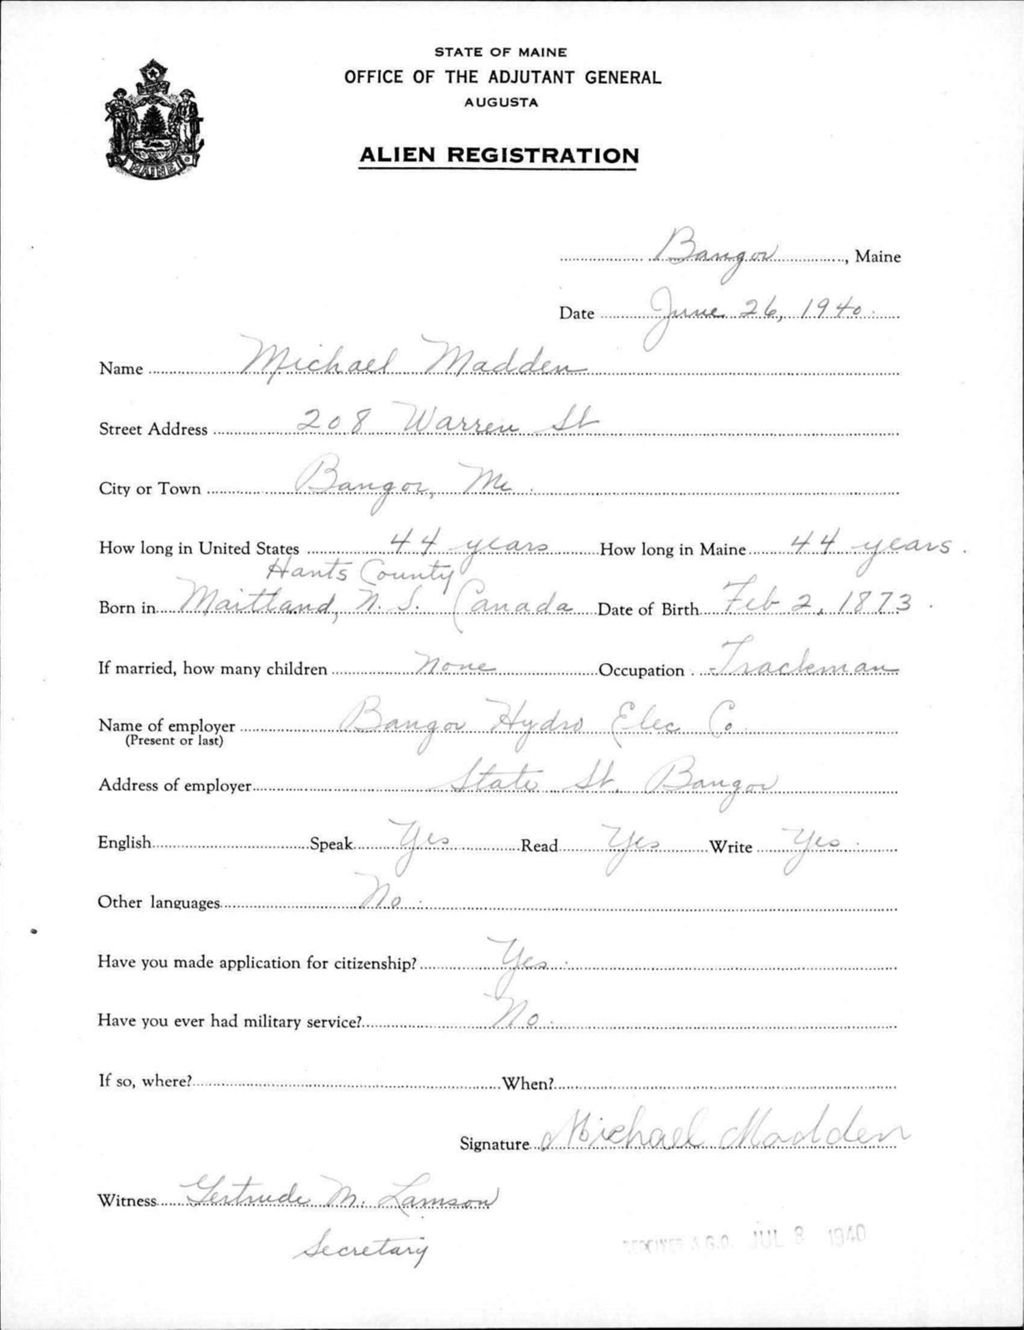 STATE OF MAINE
OFFICE OF THE ADJUTANT GENERAL
AUGUSTA
ALIEN REGISTRATION
MAINE
Bangor, Maine
Date June 26, 1940.
Name Michael Madden
Street Address 208 Warren St
City or Town Bangor, Me.
How long in United States 44 years How long in Maine 44 years.
Hants County
Born in Maitland, N. S. Canada Date of Birth Feb 2, 1873.
If married, how many children None Occupation Trackman
Name of employer Bangor Hydro Elec Co.
(Present or last)
Address of employer State St. Bangor
English Speak Yes Read Yes Write Yes.
Other languages No.
Have you made application for citizenship? Yes.
Have you ever had military service? No.
If so, where? When?
Signature Michael Madden
Witness Gertrude M. Lamson
Secretary
A.G.O. JUL 8 1940